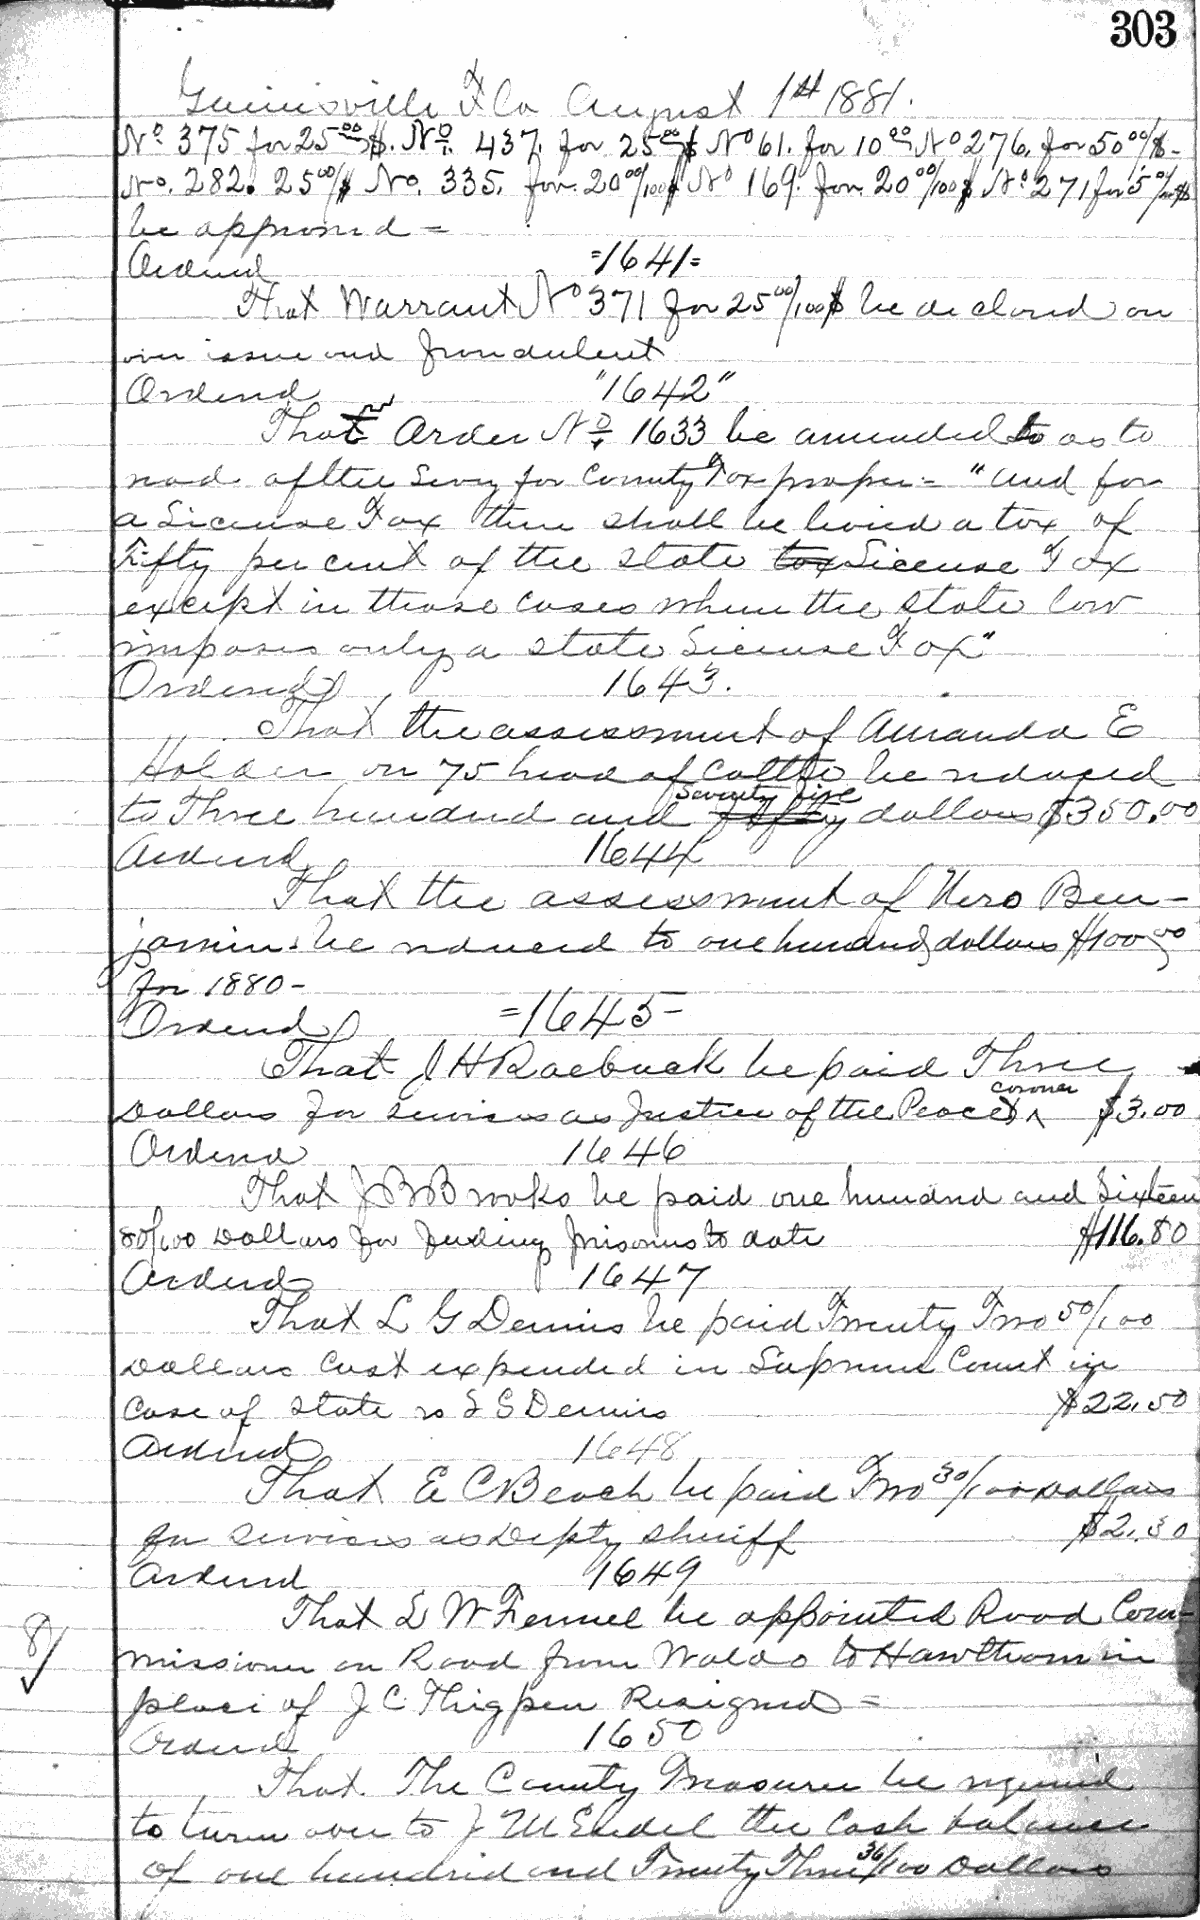 303
Gainesville Fla August 1st 1881.
No. 375 for 25 00 $. No. 437. for 25 00 $ No 61. for 10 00 No 276. for 50 00/$-
No. 282. 25 00/$ No. 335. for. 20 00/100 $ No 169. for. 20 00/100 $ No. 271 for 5
be approved =
Ordered =1641=
That Warrant No 371 for 25 00/100 $ be declared an
over issue and fraudulent
Ordered "1642"
That Order No. 1633 be amended so as to
read. after Levy for County Tax proper = "and for
a License Tax there shall be levied a tax of
Fifty per cent of the state tax License Tax
except in those cases where the state law
imposes only a state License Tax"
Ordered 1643.
That the assessment of Amanda E
Holder on 75 head of Cattle be reduced
to Three hundred and fifty Seventy five dollars $350.00
Ordered 1644
That the assessment of Nero Ben-
jamin be reduced to one hundred dollars $100 00
for 1880-
Ordered =1645-
That J H Roebuck be paid Three
Dollars for services as Justice of the Peace & coroner $3.00
Ordered 1646
That J B Brooks be paid one hundred and Sixteen
80/100 Dollars for feeding prisoners to date $116.80
Ordered 1647
That L G Dennis be paid Twenty Two 50/100
Dollars Cost expended in Supreme Court in
Case of State vs L G Dennis $22.50
Ordered 1648
That E C Beach be paid Two 30/100 Dollars
for services as Depty sheriff $2.30
Ordered 1649
That L W Fennel be appointed Road Com-
missioner on Road from Waldo to Hawthorn in
place of J C Thigpen Resigned =
Ordered 1650
That. The County Treasurer be required
to turn over to J M Endel the Cash balance
of one hundred and Twenty Three 36/100 Dollars